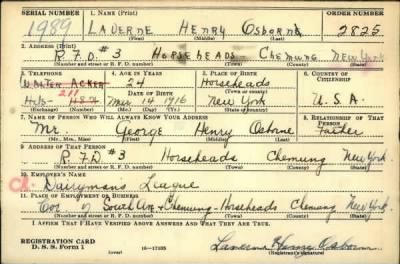 SERIAL NUMBER 1. NAME (Print) ORDER NUMBER
1989 LaVerne Henry Osborne 2825
(First) (Middle) (Last)
2. ADDRESS (Print)
R.F.D #3 Horseheads Chemung New York
(Number and street or R. F. D. number) (Town) (County) (State)
3. TELEPHONE 4. AGE IN YEARS 5. PLACE OF BIRTH 6. COUNTRY OF CITIZENSHIP
Walter Acker 24 Horseheads
211 DATE OF BIRTH (Town or county)
Hds- Mar 14 1916 New York U.S.A.
(Exchange) (Number) (Mo.) (Day) (Yr.) (State or country)
7. NAME OF PERSON WHO WILL ALWAYS KNOW YOUR ADDRESS 8. RELATIONSHIP OF THAT PERSON
Mr. George Henry Osborne Father
(Mr., Mrs., Miss) (First) (Middle) (Last)
9. ADDRESS OF THAT PERSON
R.F.D #3 Horseheads Chemung New York.
(Number and street or R. F. D. number) (Town) (County) (State)
10. EMPLOYER'S NAME
Dairymans League
11. PLACE OF EMPLOYMENT OR BUSINESS
Cor. of South Ave & Chemung - Horseheads Chemung New York.
(Number and street or R. F. D. number) (Town) (County) (State)
I AFFIRM THAT I HAVE VERIFIED ABOVE ANSWERS AND THAT THEY ARE TRUE.
REGISTRATION CARD
D. S. S. Form 1 (over) 16—17105 Laverne Henry Osborne
(Registrant's signature)